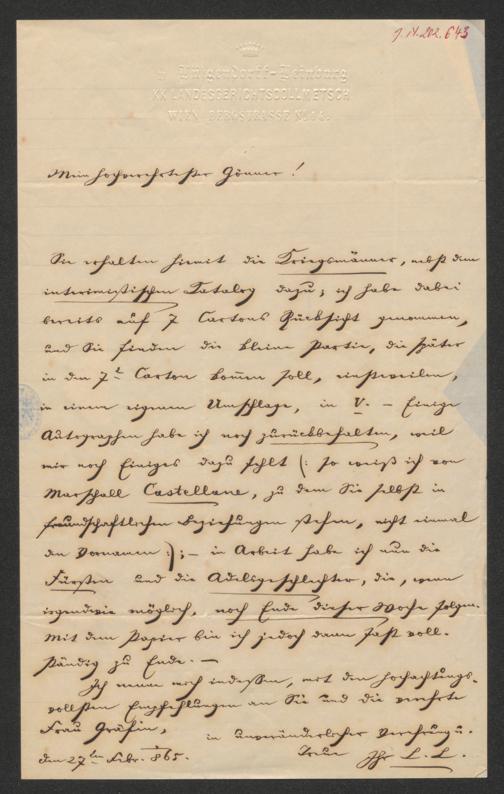 I. N. 202.643
v. Püttgendorff-Leinburg
KK LANDESGERICHTSDOLLMETSCH
WIEN BERGSTRASSE
Mein hochverehrtester Gönner!
Sie erhalten hiemit die Kriegsmänner, nebst dem
interimistischen Catalog dazu; ich habe dabei
bereits auf 7 Cartons Rücksicht genommen,
und Sie finden die kleine Partie, die später
in den 7t. Carton kom̅en soll, einstweilen,
in einem eigenen Umschlage, in V. – Einige
Autographen habe ich noch zurückbehalten, weil
mir noch Einiges dazu fehlt (: so weiß ich von
Marschall Castellane, zu dem Sie selbst in
freundschaftlichen Beziehungen stehen, nicht einmal
den Vornamen :); – in Arbeit habe ich nun die
Fürsten und die Adeligeschlechter, die, wenn
irgendwie möglich, noch Ende dieser Woche folgen.
Mit dem Papier bin ich jedoch dann fast voll-
ständig zu Ende. –
Ich nenne mich indessen, mit den hochachtungs-
vollsten Empfehlungen an Sie und die verehrte
Frau Gräfin,
in unveränderlicher Verehrung u.
Treue Ihr L. L.
den 27ten Febr. 865.